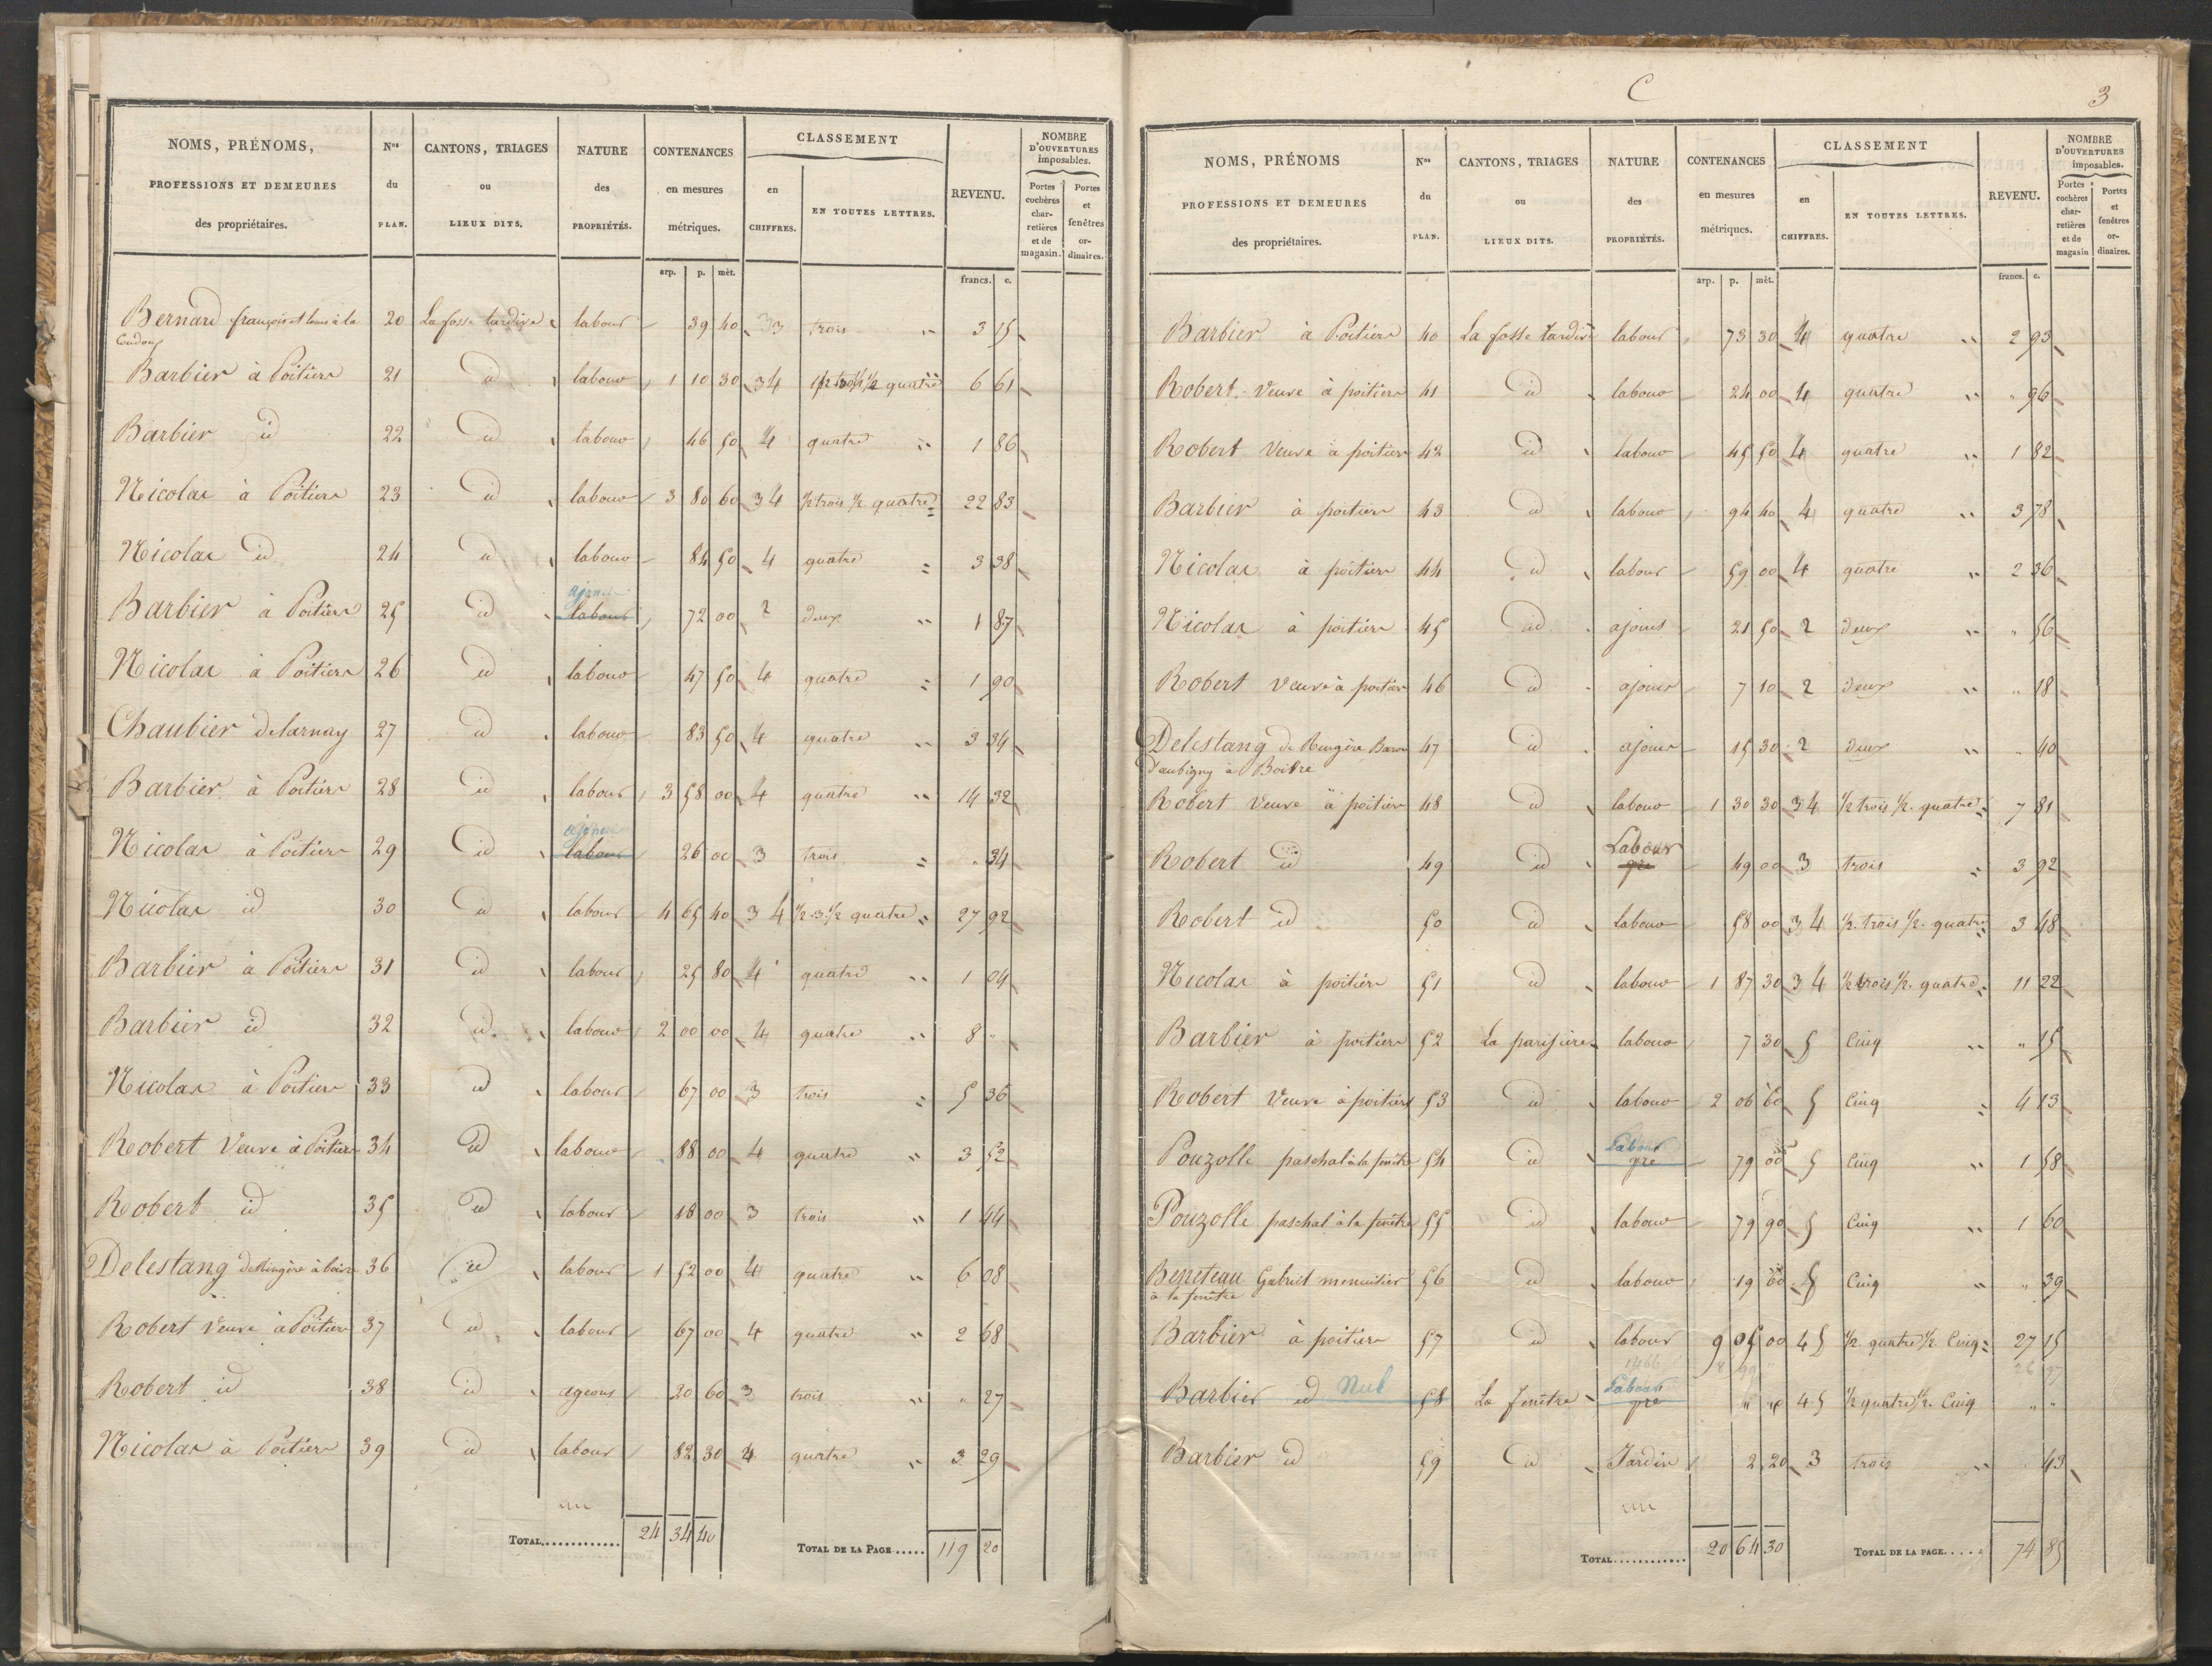 NOMS, PRÉNOMS, PROFESSIONS ET DEMEURES des propriétaires. | Nos du PLAN. | CANTONS, TRIAGES ou LIEUX DITS. | NATURE des PROPRIÉTÉS. | CONTENANCES en mesures métriques. | CLASSEMENT en CHIFFRES. | EN TOUTES LETTRES. | REVENU. | NOMBRE D'OUVERTURES imposables. Portes cochères charretières et de magasin. | Portes et fenêtres ordinaires.
arp. | p. | mèt. | francs. | c.
Bernard françois et louis à la 20 La fosse tardive labour 39 40 3 trois 3 15
Barbier à Poitiers 21 id labour 1 10 30 34 1/2 quatre 6 61
Barbier id 22 id labour 46 50 4 quatre 1 86
Nicolas à Poitiers 23 id labour 3 80 60 34 1/2 trois 1/2 quatre 22 83
Nicolas id 24 id labour 84 50 4 quatre 3 38
Barbier à Poitiers 25 id labour 72 00 2 deux 1 87
Nicolas à Poitiers 26 id labour 47 50 4 quatre 1 90
Chaubier delarnay 27 id labour 83 50 4 quatre 3 34
Barbier à Poitiers 28 id labour 3 58 00 4 quatre 14 32
Nicolas à Poitiers 29 id labour 26 00 3 trois " 34
Nicolas id 30 id labour 4 65 40 3 4 1/2 3 1/2 quatre 27 92
Barbier à Poitiers 31 id labour 25 80 4 quatre 1 04
Barbier id 32 id. labour 2 00 00 4 quatre 8 "
Nicolas à Poitiers 33 id labour 67 00 3 trois 5 36
Robert Veuve à Poitiers 34 id labour 88 00 4 quatre 3 52
Robert id 35 id labour 18 00 3 trois 1 44
Delestang 36 id labour 1 52 00 4 quatre 6 08
Robert Veuve à Poitiers 37 id labour 67 00 4 quatre 2 68
Robert id 38 id ageons 20 60 3 trois " 27
Nicolas à Poitiers 39 id labour 82 30 4 quatre 3 29
TOTAL............. 24 34 40 TOTAL DE LA PAGE..... 119 20
C
3
NOMS, PRÉNOMS PROFESSIONS ET DEMEURES des propriétaires. | Nos du PLAN. | CANTONS, TRIAGES ou LIEUX DITS. | NATURE des PROPRIÉTÉS. | CONTENANCES en mesures métriques. | CLASSEMENT en CHIFFRES. | EN TOUTES LETTRES. | REVENU. | NOMBRE D'OUVERTURES imposables. Portes cochères charretières et de magasin | Portes et fenêtres ordinaires.
arp. | p. | mèt. | francs. | c.
Barbier à Poitiers 40 La fosse tardive labour 73 30 4 quatre 2 93
Robert Veuve à poitiers 41 id labour 24 00 4 quatre " 96
Robert Veuve à poitiers 42 id labour 45 50 4 quatre 1 82
Barbier à poitiers 43 id labour 94 40 4 quatre 3 78
Nicolas à poitiers 44 id labour 59 00 4 quatre 2 36
Nicolas à poitiers 45 id ajoncs 21 50 2 deux " 56
Robert Veuve à poitiers 46 id ajoncs 7 10 2 deux " 18
Delestang de Rengère Baron 47 id ajoncs 15 30 2 deux " 40
d'aubigny à Boivre
Robert Veuve à poitiers 48 id labour 1 30 30 34 1/2 trois 1/2 quatre 7 81
Robert id 49 id Labour 49 00 3 trois 3 92
Robert id 50 id labour 58 00 3 4 1/2 trois 1/2 quatre 3 48
Nicolas à poitiers 51 id labour 1 87 30 3 4 1/2 trois 1/2 quatre 11 22
Barbier à poitiers 52 La parisière labour 7 30 5 Cinq " 15
Robert Veuve à poitiers 53 id labour 2 06 60 5 Cinq 4 13
Pouzolle paschal à la fenêtre 54 id Labour pré 79 00 5 Cinq 1 58
Pouzolle paschal à la fenêtre 55 id labour 79 90 5 Cinq 1 60
Beneteau Gabriel menuisier 56 id labour 19 60 5 Cinq " 39
à la fenêtre
Barbier à poitiers 57 id labour 9 05 00 4 5 1/2 quatre 1/2 Cinq 27 15
Barbier id Nul 58 La fenêtre Labour pré " " 4 5 1/2 quatre 1/2 Cinq " "
Barbier id 59 id Jardin 2 20 3 trois 43
TOTAL............ 20 64 30 TOTAL DE LA PAGE..... 74 85